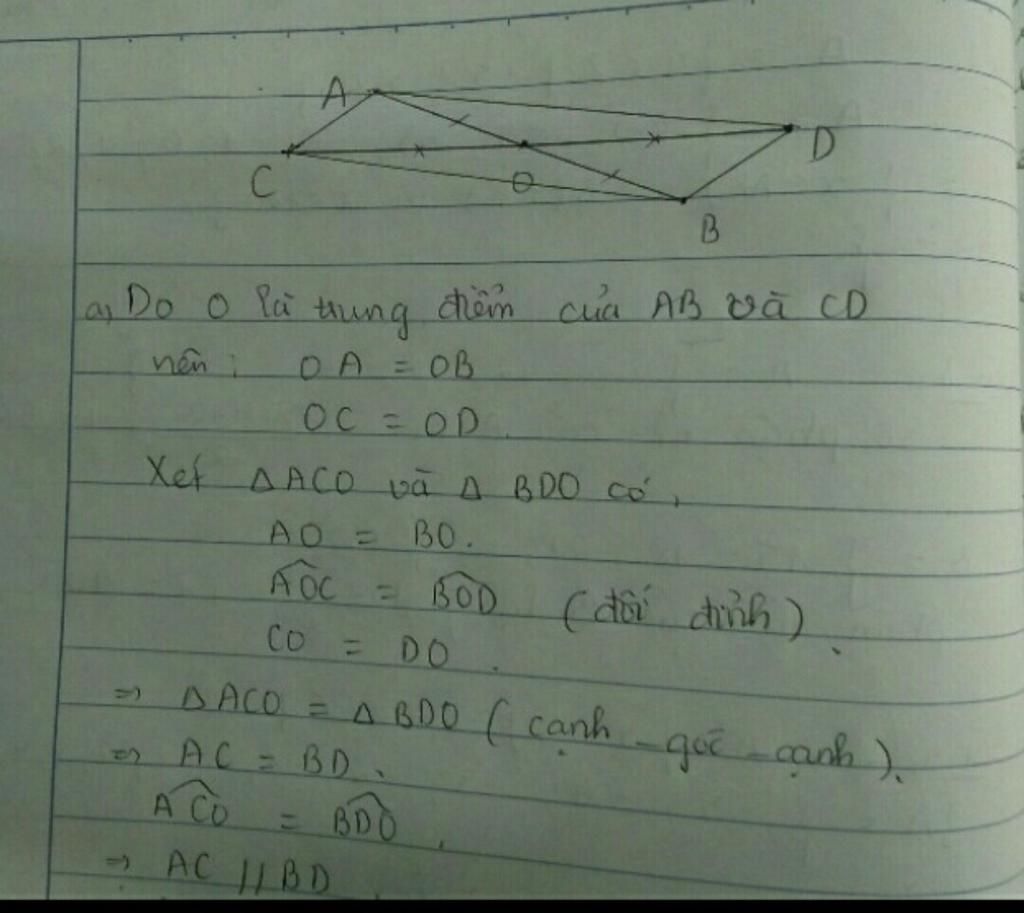 A
D
C
O
B
a, Do O là trung điểm của AB và CD
nên: OA = OB
OC = OD.
Xét ΔACO và Δ BDO có,
AO = BO.
\widehat{AOC} = \widehat{BOD} (đối đỉnh).
CO = DO.
=> ΔACO = ΔBDO (cạnh - góc - cạnh).
=> AC = BD.
\widehat{ACO} = \widehat{BDO},
=> AC // BD